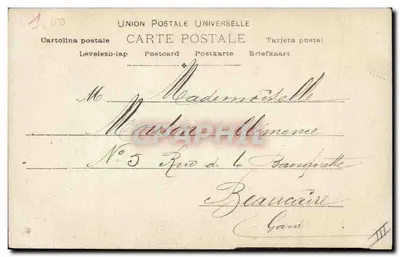 1.00
UNION POSTALE UNIVERSELLE
CARTE POSTALE
Cartolina postale Tarjeta postal
Levelezö-lap Postcard Postkarte Briefkaart
M Mademoiselle
Clémence
N° 5 Rue de la Banquette
Beaucaire
Gard
III